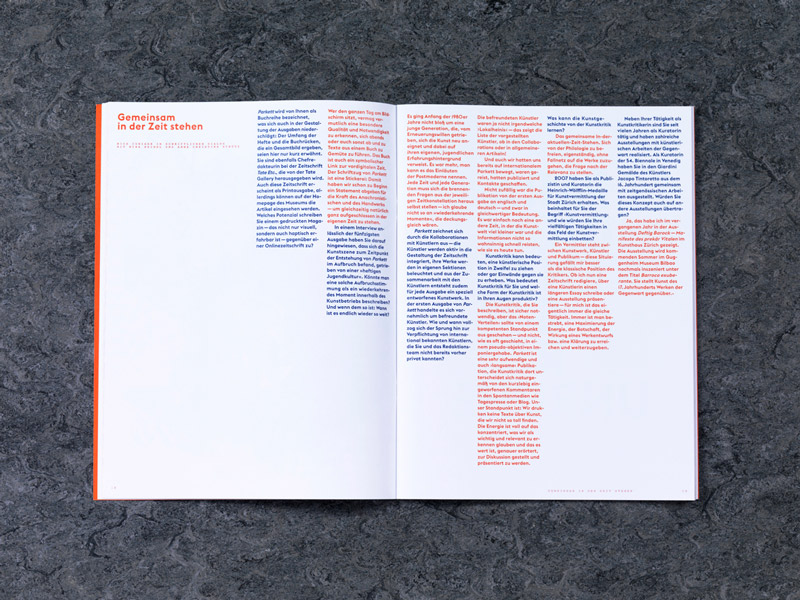 Gemeinsam
in der Zeit stehen
Parkett wird von Ihnen als
Buchreihe bezeichnet,
was sich auch in der Gestal-
tung der Ausgaben nieder-
schlägt: Der Umfang der
Hefte und die Buchrücken,
die ein Gesamtbild ergeben,
seien hier nur kurz erwähnt.
Sie sind ebenfalls Chefre-
dakteurin bei der Zeitschrift
Tate Etc., die von der Tate
Gallery herausgegeben wird.
Auch diese Zeitschrift er-
scheint als Printausgabe, al-
lerdings können auf der Ho-
mepage des Museums die
Artikel eingesehen werden.
Welches Potenzial schreiben
Sie einem gedruckten Maga-
zin — das nicht nur visuell,
sondern auch haptisch er-
fahrbar ist — gegenüber ei-
ner Onlinezeitschrift zu?
Wer den ganzen Tag am Bild-
schirm sitzt, vermag ver-
mutlich eine besondere
Qualität und Notwendigkeit
zu erkennen, sich abends
oder auch sonst ab und zu
Texte aus einem Buch zu
Gemüte zu führen. Das Buch
ist auch ein symbolischer
Link zur vordigitalen Zeit.
Der Schriftzug von Parkett
ist eine Stickerei: Damit
haben wir schon zu Beginn
ein Statement abgeben für
die Kraft des Anachronisti-
schen und das Handwerk
— um gleichzeitig natürlich
ganz aufgeschlossen in der
eigenen Zeit zu stehen.
In einem Interview an-
lässlich der fünfzigsten
Ausgabe haben Sie darauf
hingewiesen, dass sich die
Kunstszene zum Zeitpunkt
der Entstehung von Parkett
im Aufbruch befand, getrie-
ben von einer «heftigen
Jugendkultur». Könnte man
eine solche Aufbruchstim-
mung als ein wiederkehren-
des Moment innerhalb des
Kunstbetriebs beschreiben?
Und wenn dem so ist: Wann
ist es endlich wieder so weit?
Es ging Anfang der 1980er
Jahre nicht bloß um eine
junge Generation, die, vom
Erneuerungswillen getrie-
ben, sich die Kunst neu an-
eignet und dabei auf
ihren eigenen, jugendlichen
Erfahrungshintergrund
verweist. Es war mehr, man
kann es das Einläuten
der Postmoderne nennen.
Jede Zeit und jede Genera-
tion muss sich die brennen-
den Fragen aus der jeweili-
gen Zeitkonstellation heraus
selbst stellen — ich glaube
nicht so an «wiederkehrende
Momente», die deckungs-
gleich wären.
Parkett zeichnet sich
durch die Kollaborationen
mit Künstlern aus — die
Künstler werden aktiv in die
Gestaltung der Zeitschrift
integriert, ihre Werke wer-
den in eigenen Sektionen
beleuchtet und aus der Zu-
sammenarbeit mit den
Künstlern entsteht zudem
für jede Ausgabe ein speziell
entworfenes Kunstwerk. In
der ersten Ausgabe von Par-
kett handelte es sich vor-
nehmlich um befreundete
Künstler. Wie und wann voll-
zog sich der Sprung hin zur
Verpflichtung von interna-
tional bekannten Künstlern,
die Sie und das Redaktions-
team nicht bereits vorher
privat kannten?
Die befreundeten Künstler
waren ja nicht irgendwelche
«Lokalheinis» — das zeigt die
Liste der vorgestellten
Künstler, ob in den Collabo-
rations oder in allgemeine-
ren Artikeln.
Und auch wir hatten uns
bereits auf internationalem
Parkett bewegt, waren ge-
reist, hatten publiziert und
Kontakte geschaffen.
Nicht zufällig war die Pu-
blikation von der ersten Aus-
gabe an englisch und
deutsch — und zwar in
gleichwertiger Bedeutung.
Es war einfach noch eine an-
dere Zeit, in der die Kunst-
welt viel kleiner war und die
Informationen nicht so
wahnsinnig schnell reisten,
wie sie es heute tun.
Kunstkritik kann bedeu-
ten, eine künstlerische Posi-
tion in Zweifel zu ziehen
oder gar Einwände gegen sie
zu erheben. Was bedeutet
Kunstkritik für Sie und wel-
che Form der Kunstkritik ist
in Ihren Augen produktiv?
Die Kunstkritik, die Sie
beschreiben, ist sicher not-
wendig, aber das «Moten-
Verteilen» sollte von einem
kompetenten Standpunkt
aus geschehen — und nicht,
wie es oft geschieht, in ei-
nem pseudo-objektiven Im-
poniergehabe. Parkett ist
eine sehr aufwendige und
auch «langsame» Publika-
tion, die Kunstkritik dort un-
terscheidet sich naturge-
mäß von den kurzlebig ein-
geworfenen Kommentaren
in den Spontanmedien wie
Tagespresse oder Blog. Un-
ser Standpunkt ist: Wir druk-
ken keine Texte über Kunst,
die wir nicht so toll finden.
Die Energie ist voll auf das
konzentriert, was wir als
wichtig und relevant zu er-
kennen glauben und das es
wert ist, genauer erörtert,
zur Diskussion gestellt und
präsentiert zu werden.
Was kann die Kunstge-
schichte von der Kunstkritik
lernen?
Das gemeinsame In-der-
aktuellen-Zeit-Stehen. Sich
von der Philologie zu be-
freien, eigenständig, ohne
Fallnetz auf die Werke zuzu-
gehen, die Frage nach der
Relevanz zu stellen.
2007 haben Sie als Publi-
zistin und Kuratorin die
Heinrich-Wölfflin-Medaille
für Kunstvermittlung der
Stadt Zürich erhalten. Was
beinhaltet für Sie der
Begriff ‹Kunstvermittlung›
und wie würden Sie Ihre
vielfältigen Tätigkeiten in
das Feld der Kunstver-
mittlung einbetten?
Ein Vermittler steht zwi-
schen Kunstwerk, Künstler
und Publikum — diese Situie-
rung gefällt mir besser
als die klassische Position des
Kritikers. Ob ich nun eine
Zeitschrift redigiere, über
eine Künstlerin einen
längeren Essay schreibe oder
eine Ausstellung präsen-
tiere — für mich ist das ei-
gentlich immer die gleiche
Tätigkeit. Immer ist man be-
strebt, eine Maximierung der
Energie, der Botschaft, der
Wirkung eines Werkentwurfs
bzw. eine Klärung zu errei-
chen und weiterzugeben.
Neben Ihrer Tätigkeit als
Kunstkritikerin sind Sie seit
vielen Jahren als Kuratorin
tätig und haben zahlreiche
Ausstellungen mit künstleri-
schen Arbeiten der Gegen-
wart realisiert. Als Kuratorin
der 54. Biennale in Venedig
haben Sie in den Giardini
Gemälde des Künstlers
Jacopo Tintoretto aus dem
16. Jahrhundert gemeinsam
mit zeitgenössischen Arbei-
ten ausgestellt. Würden Sie
dieses Konzept auch auf an-
dere Ausstellungen übertra-
gen?
Ja, das habe ich im ver-
gangenen Jahr in der Aus-
stellung Deftig Barock — Ma-
nifeste des prekär Vitalen im
Kunsthaus Zürich gezeigt.
Die Ausstellung wird kom-
menden Sommer im Gug-
genheim Museum Bilbao
nochmals inszeniert unter
dem Titel Barroco exube-
rante. Sie stellt Kunst des
17. Jahrhunderts Werken der
Gegenwart gegenüber.
GEMEINSAM IN DER ZEIT STEHEN